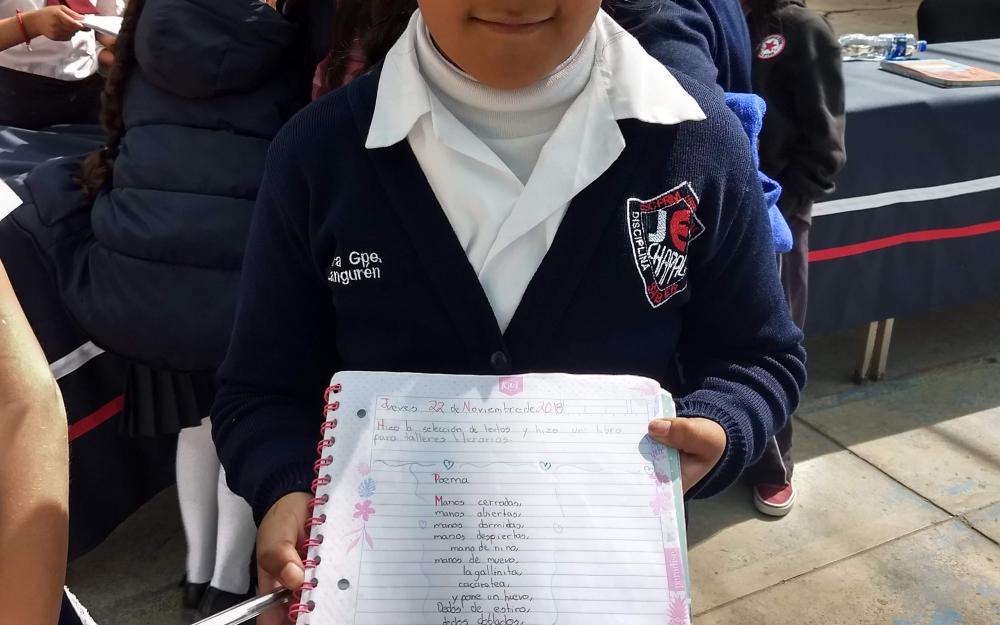 Gpe.
DISCIPLINA
J
SABER
Kiut
Jueves 22 de Noviembre de 2018
Hizo la selección de textos y hizo un libro
para talleres literarios.
Poema
Manos cerradas,
manos abiertas,
manos dormidas,
manos despiertas,
mano de nino,
manos de nuevo,
la gallinita,
cacarotea,
y pone un huevo,
Dedos de estiro,
dedos doblados,
paradise